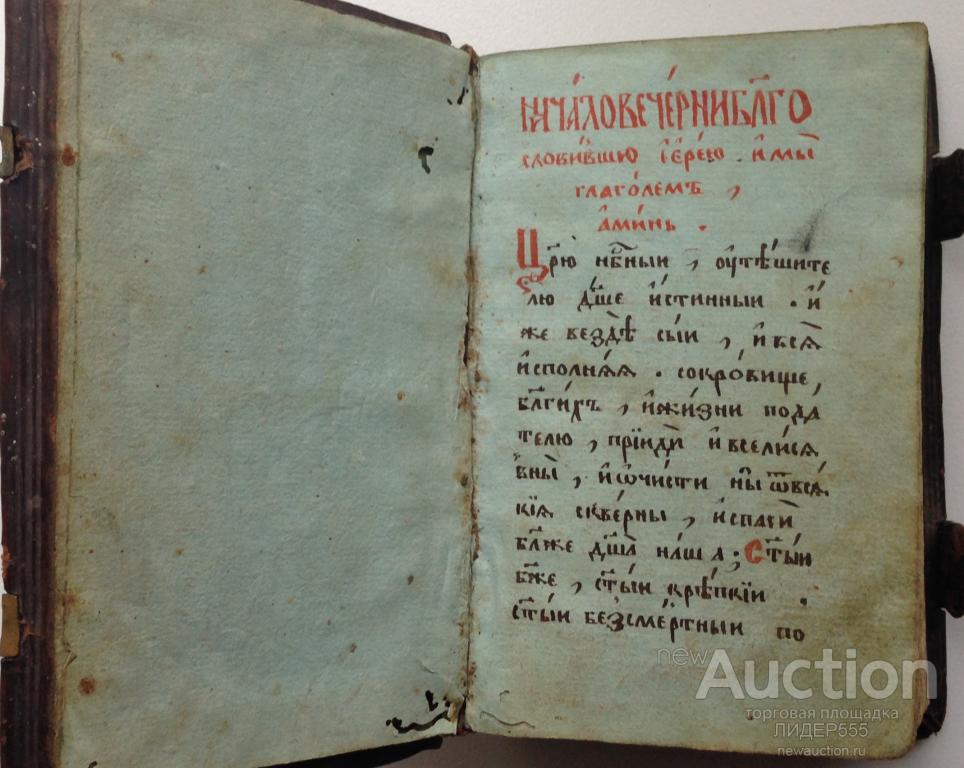 Нача́ло вече́рни бл҃го
слови́вшю і҆ере́ю . и҆ мы̀
глаго́лемъ ,
а҆ми́нь .
Цр҃ю̀ нбн҃ыи , ᲂу҆тѣ́шите
лю дш҃е и҆́стинныи . и҆́
же вездѣ̀ сы́и , и҆ всѧ̀
и҆сполнѧ́ѧ . сокро́вище ,
бл҃ги́хъ , и҆ жи́зни пода́
телю , прїидѝ и҆ всели́сѧ
в ны̀ , и҆ ѡ҆чи́сти ны ѿ всѧ́
кїѧ скве́рны , и҆ спасѝ
бл҃же дш҃а на́ша . Ст҃ы́и
бж҃е , ст҃ы́и крѣ́пкїи .
ст҃ы́и безсме́ртныи по
newAuction
торговая площадка
ЛИДЕР555
newauction.ru